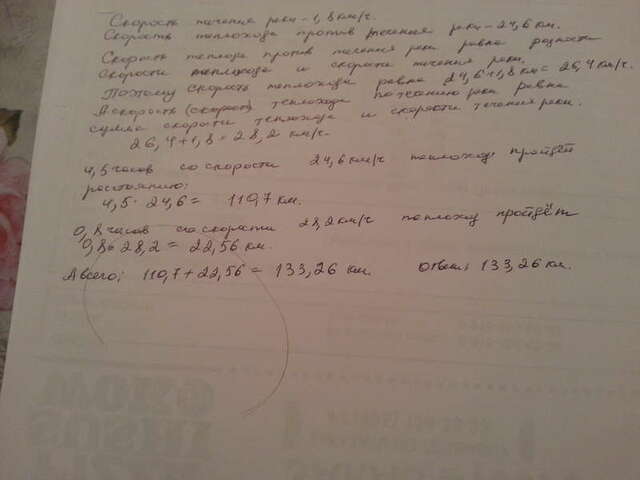 Скорость течения реки - 1,8 км/г.
Скорость теплохода против течения реки - 24,6 км.
Скорость теплохода против течения реки равна разности
скорости теплохода и скорости течения реки.
Поэтому скорость теплохода равна 24,6+1,8 км = 26,4 км/г.
А скорость (скорост) теплохода по течению реки равна
сумма скорости теплохода и скорости течения реки.
26,4+1,8 = 28,2 км/г.
4,5 часов со скорости 24,6 км/г теплоход пройдёт
росстоянию:
4,5 · 24,6 = 110,7 км.
0,8 часов со скорости 28,2 км/г теплоход пройдёт
0,8 · 28,2 = 22,56 км.
А всего: 110,7 + 22,56 = 133,26 км. Ответ: 133,26 км.